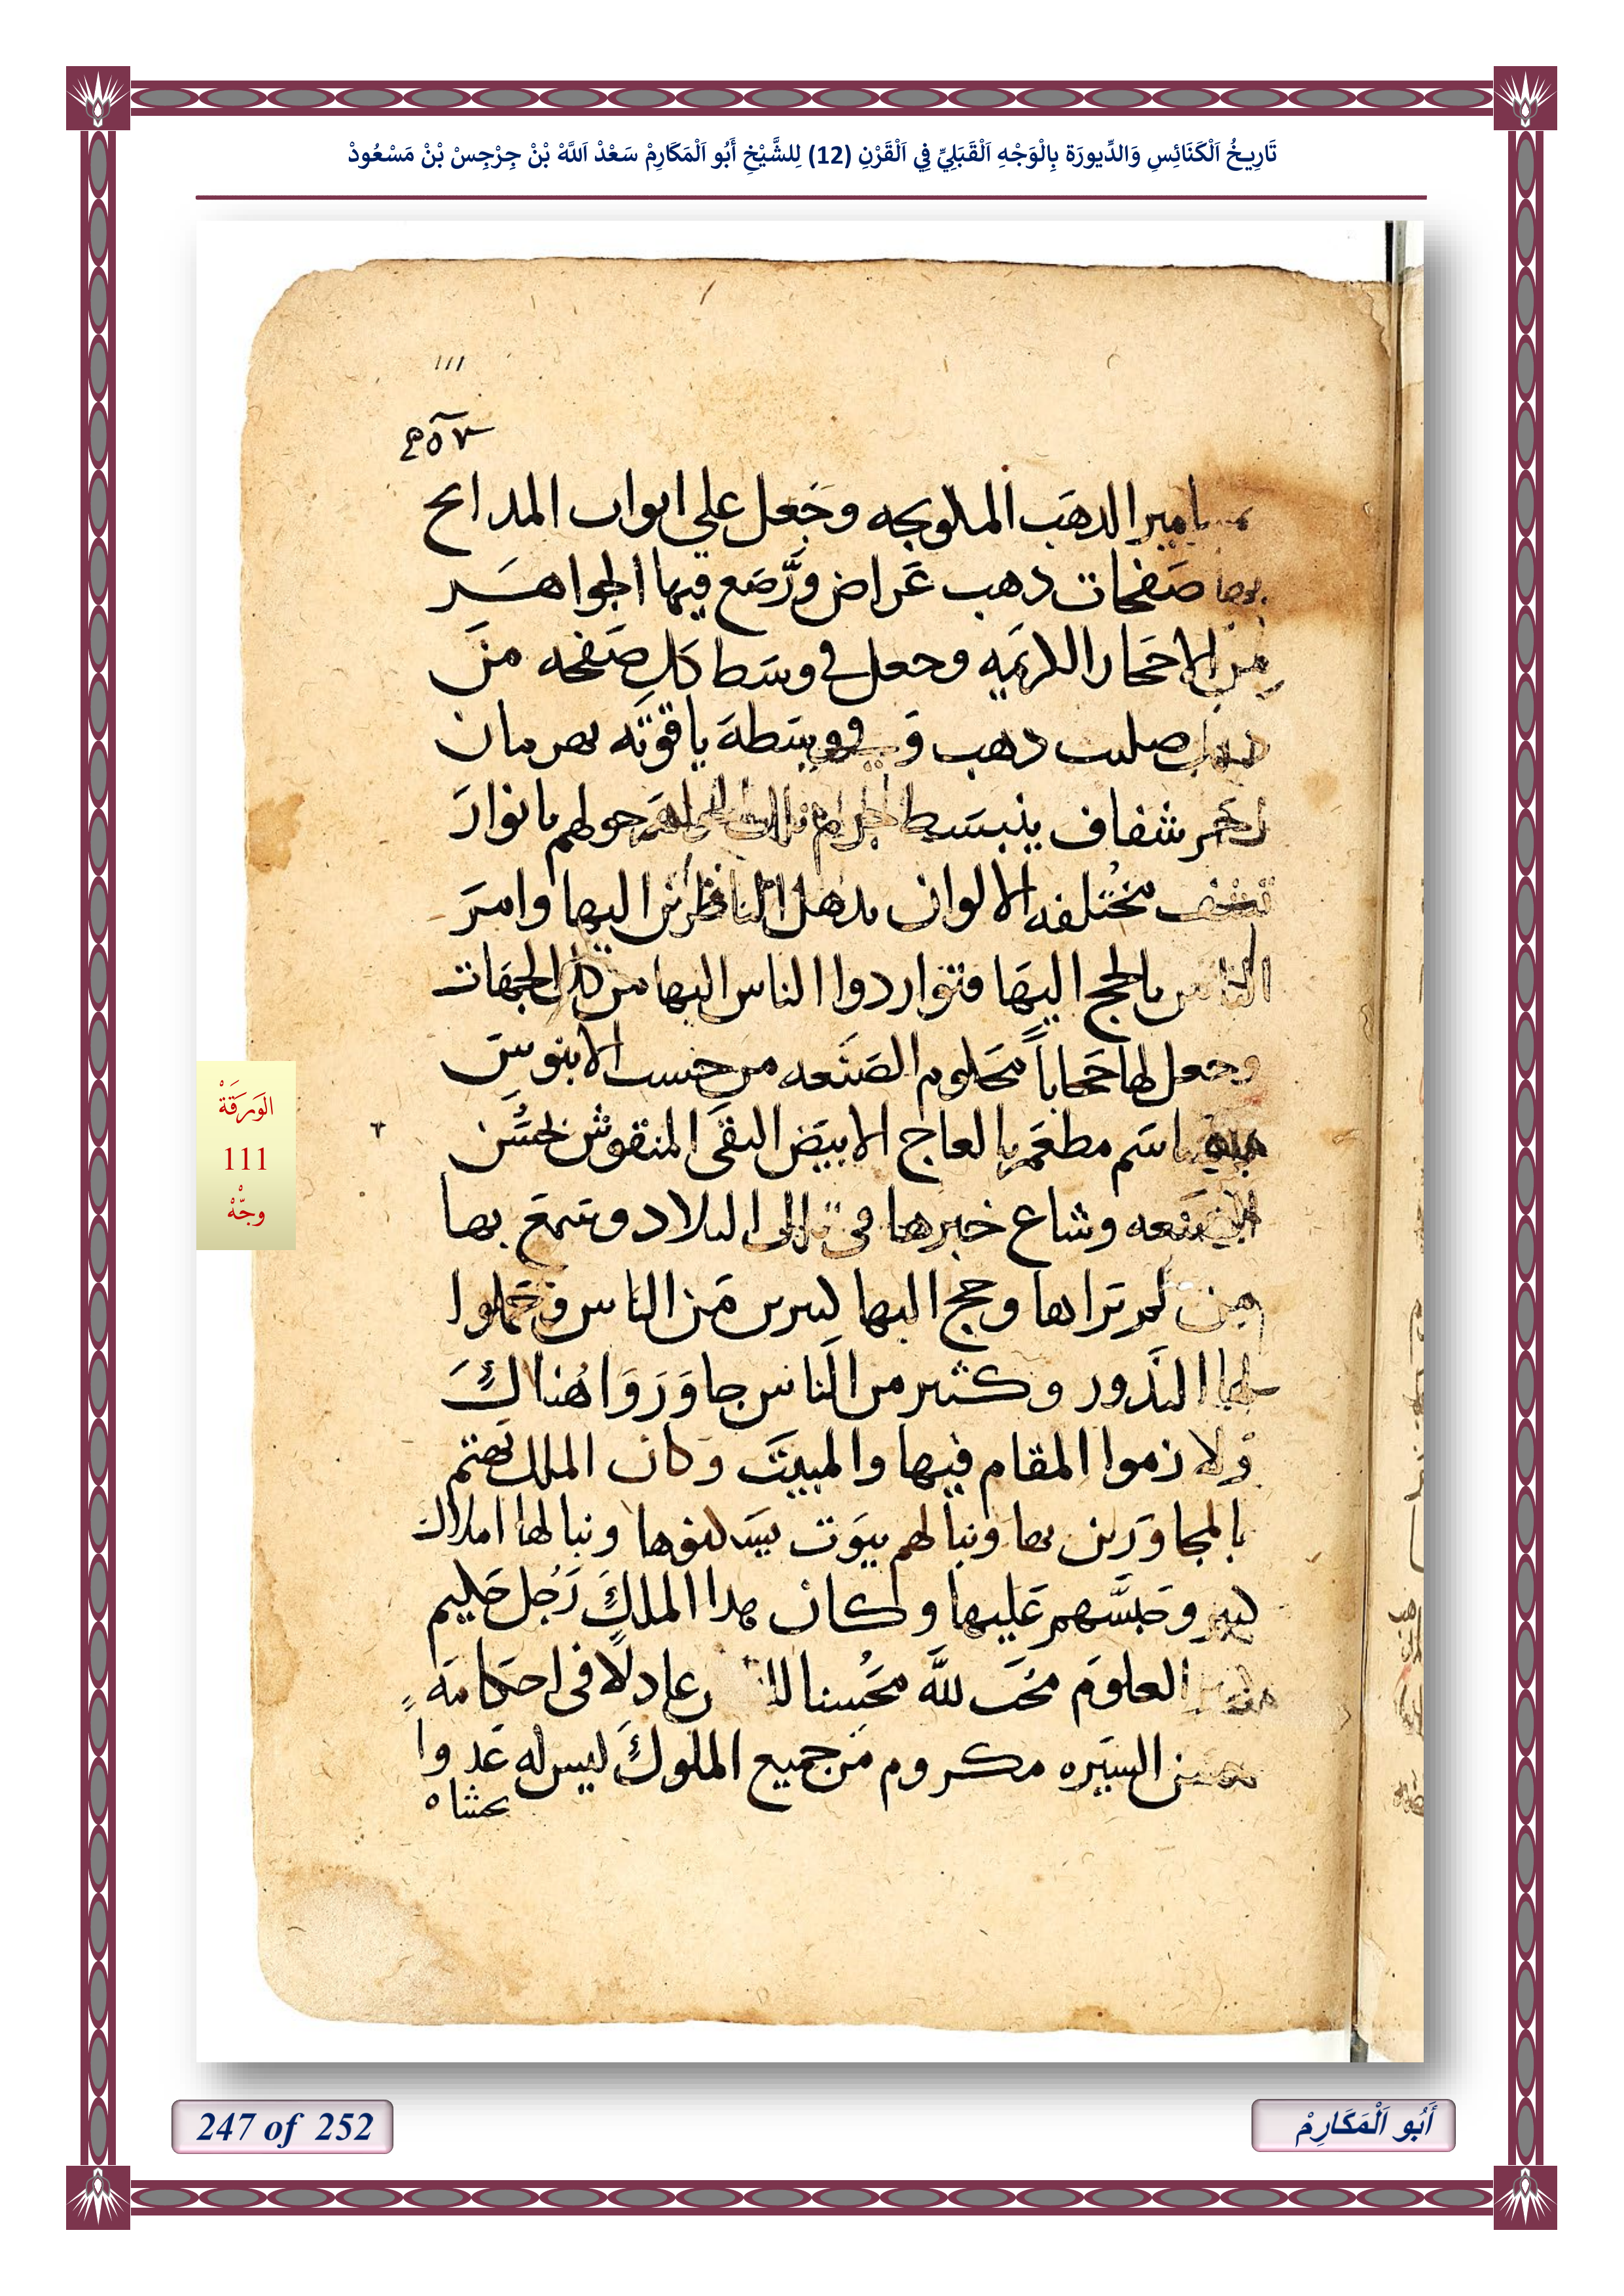 تَارِيخُ اَلْكَنَائِسِ وَالدِّيورَة بِالْوَجْهِ اَلْقَبَلِيِّ فِي اَلْقَرْنِ (12) لِلشَّيْخِ أَبُو اَلْمَكَارِمْ سَعْدْ اَللَّهْ بْنْ جِرْجِسْ بْنْ مَسْعُودْ
111
الدهَب الملوبجه وجَعل علي ابواب المدابح
صَفحات دهب عَراض ورَّصَع فيها الجواهَر
من الاحَجار الكرَيمه وجعل في وسَط كل صَفحه منَ
صليب دهب وَفي وسَطهَ ياقوتَه بهرمان
شفاف ينبسَط حولهم بانوارَ
مختلفه الالوان يدهل الناظرين اليها وامرَ
الناس بالحج اليهَا فتواردوا الناس اليها من كل الجهَات
وجعل لها حَجاباً مَحلوم الصَنَعه من خشب الابنوسَ
مطعَم بالعاج الابيَض النقَي المنقوش بحسَن
الصَنعه وشاع خبرها في البلاد وسَمعَ بها
من لم يراها وحج اليها كثير مَن الناس وحَملوا
لها النذَور وكثير من الناس جاوَرَوا هُناكَ
ولازموا المقام فيها والمبيتَ وكان الملك يَهتم
بالمجاورَين بها وبنا لهم بيوَت يسَكنوها وبنا لها املاك
كثير وحَبسَّهم عَليها وكان هدا الملكَ رَجُل حَكيم
العلومَ مُحَب للَّه مَحُسنا عادلًا في احَكامَه
السيَره مكروم مَن جميع الملوكَ ليس له عَدوا
الوَرَقَةْ
111
وجّْهْ
247 of 252
أَبُو اَلْمَكَارِمْ